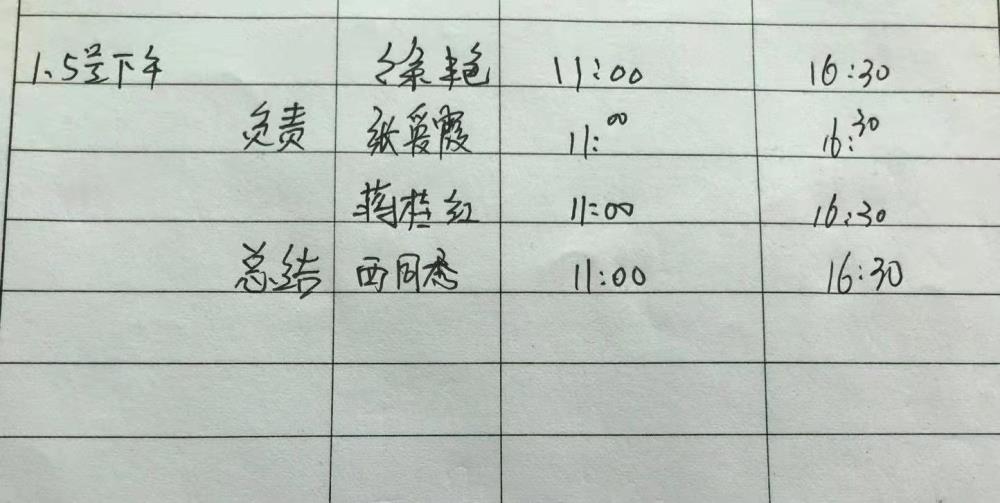 1、5号下午 徐艳 11:00 16:30
负责 张爱霞 11:00 16:30
蒋桂红 11:00 16:30
总结 西同悉 11:00 16:30